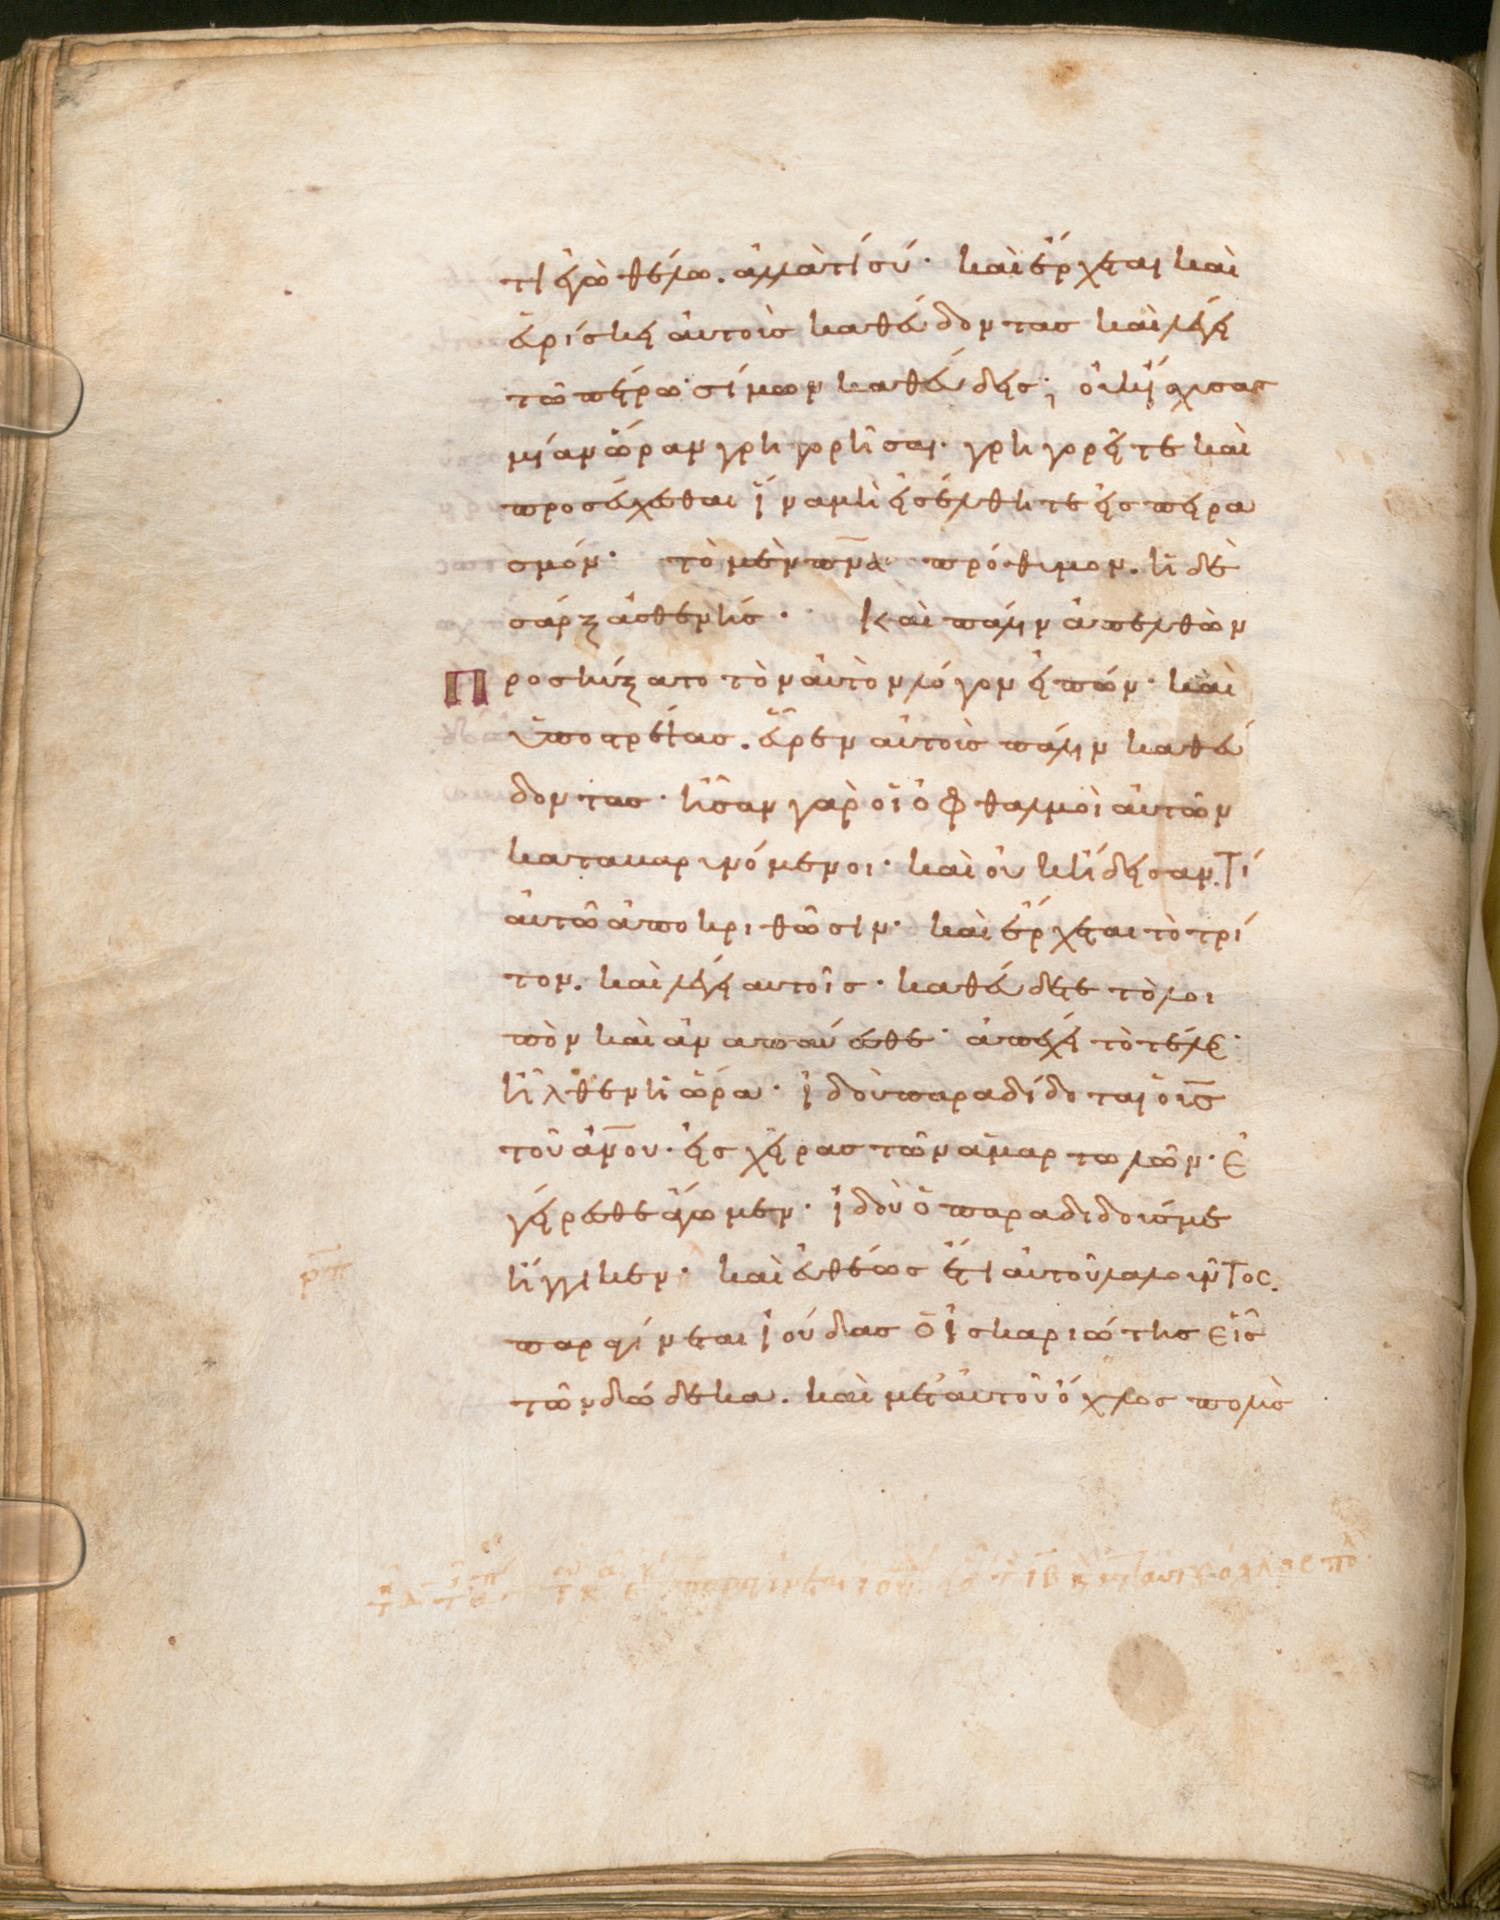 τί ἐγὼ θέλω. ἀλλὰ τί σύ· καὶ ἔρχεται καὶ
εὑρίσκει αὐτοὺς καθεύδοντας καὶ λέγει
τῶ πέτρω· σίμων καθεύδεις; οὐκ ἴσχυσας
μίαν ὥραν γρηγορῆσαι· γρηγορεῖτε καὶ
προσεύχεσθαι ἵνα μὴ εἰσέλθητε εἰς πειρα
σμόν· τὸ μὲν πν̅α πρόθυμον. ἡ δὲ
σάρξ ἀσθενής· Καὶ πάλιν ἀπελθὼν
Προσηύξατο τὸν αὐτὸν λόγον εἰπών· καὶ
ὑποστρέψας. εὗρεν αὐτοὺς πάλιν καθεύ
δοντας· ἦσαν γὰρ οἱ ὀφθαλμοὶ αὐτῶν
καταβαρυνόμενοι· καὶ οὐκ ἤδεισαν. Τί
αὐτῶ ἀποκριθῶσιν· καὶ ἔρχεται τὸ τρί
τον. καὶ λέγει αυτοῖς· καθεύδετε τὸ λοι
πὸν καὶ ἀναπαύεσθε· ἀπέχει τὸ τέλος·
ἦλθεν ἡ ὥρα· ἰδοὺ παραδίδοται ὁ υι̅σ
τοῦ ἀν̅ου· εἰς χεῖρας τῶν ἁμαρτωλῶν· Ἐ
γείρεσθε ἄγωμεν· ἰδοὺ ὁ παραδιδούς με
ἤγγικεν· καὶ εὐθέως ἔτι αὐτοῦ λαλοῦντος.
παραγίνεται ἰούδας ὁ ἰσκαριώτης εἷς
τῶν δώδεκα. καὶ μετ' αὐτοῦ ὄχλος πολὺς